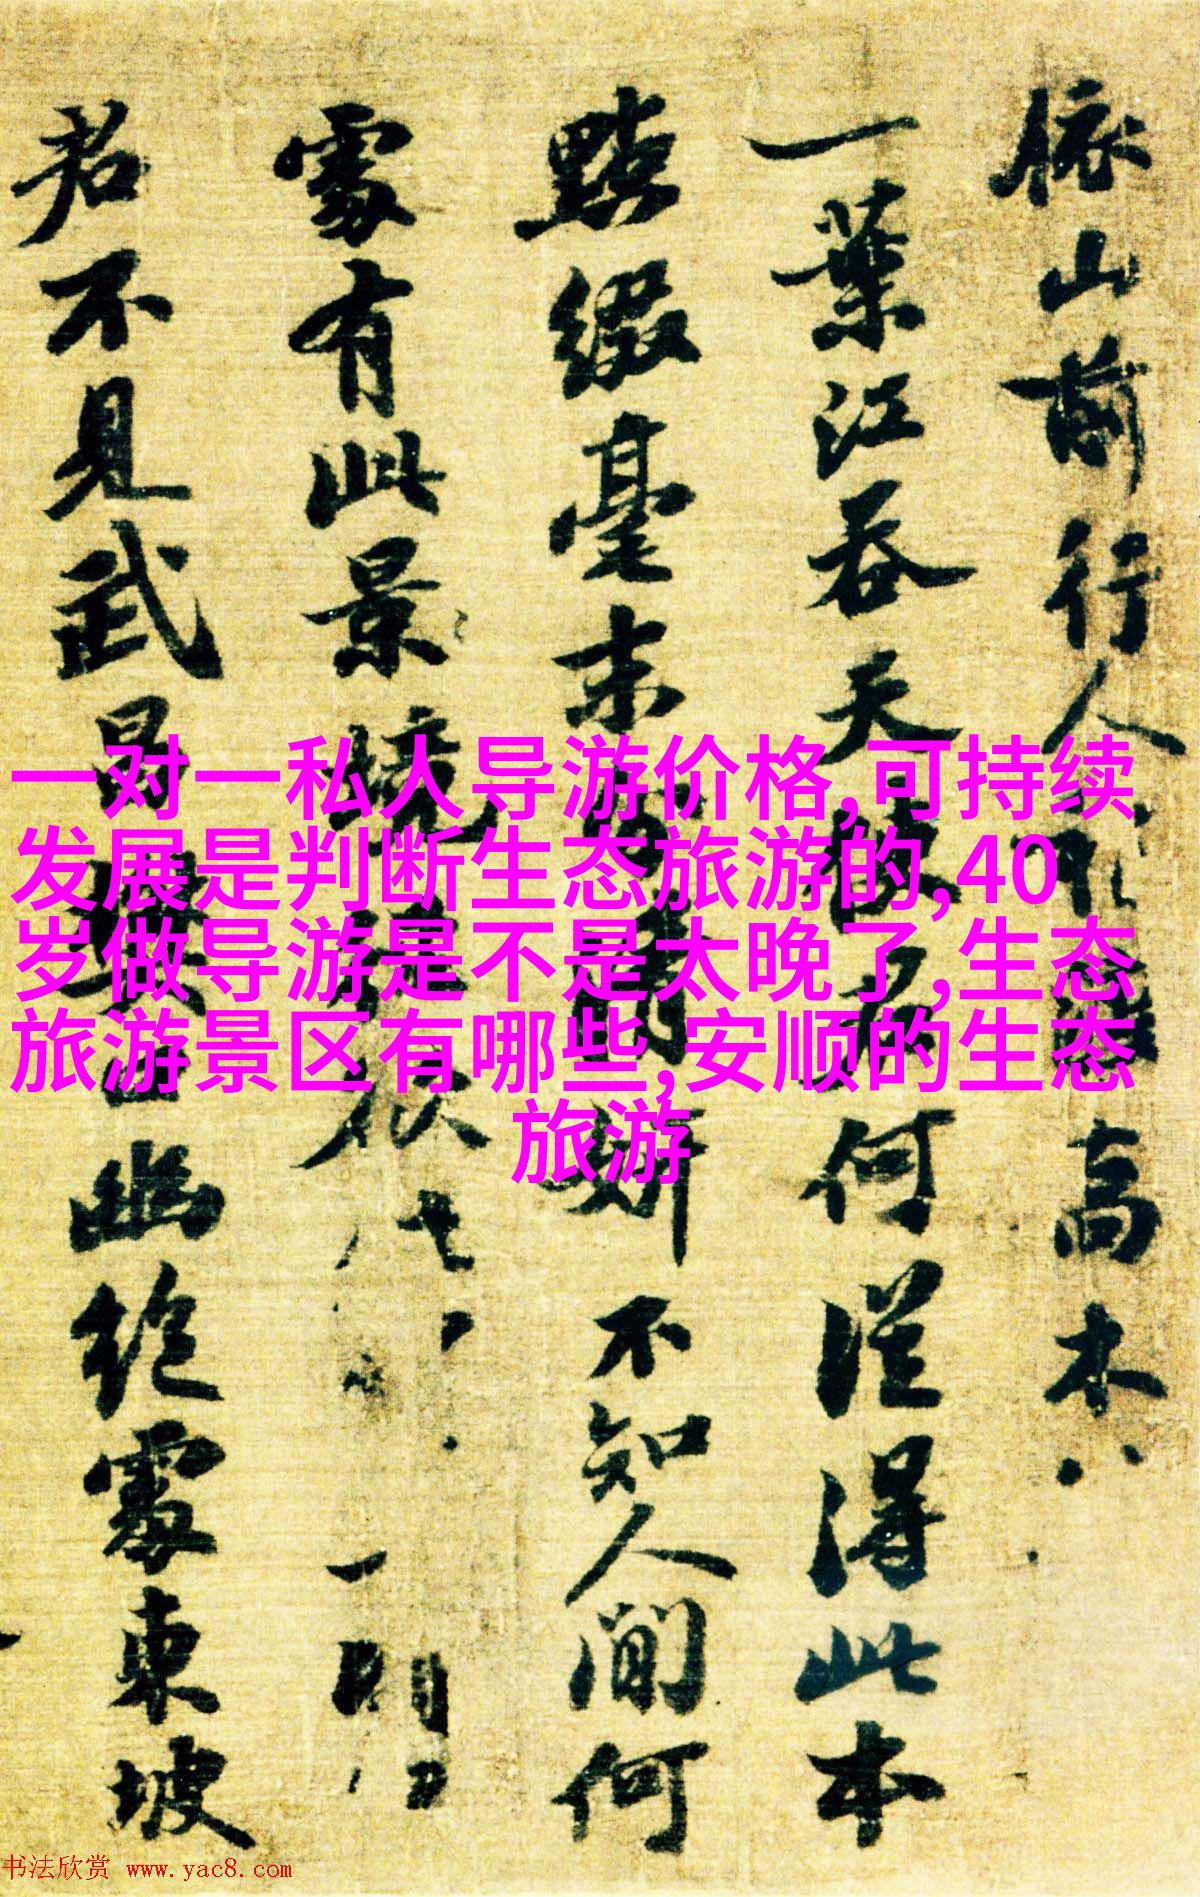 依山前行人 高木
一葉江吞天 何從得此本
點綴毫末 妍不知人間何
處有此景
君不見武昌 幽絕處東坡
一对一私人导游价格,可持续
发展是判断生态旅游的,40
岁做导游是不是太晚了,生态
旅游景区有哪些,安顺的生态
旅游
书法欣赏 www.yac8.com